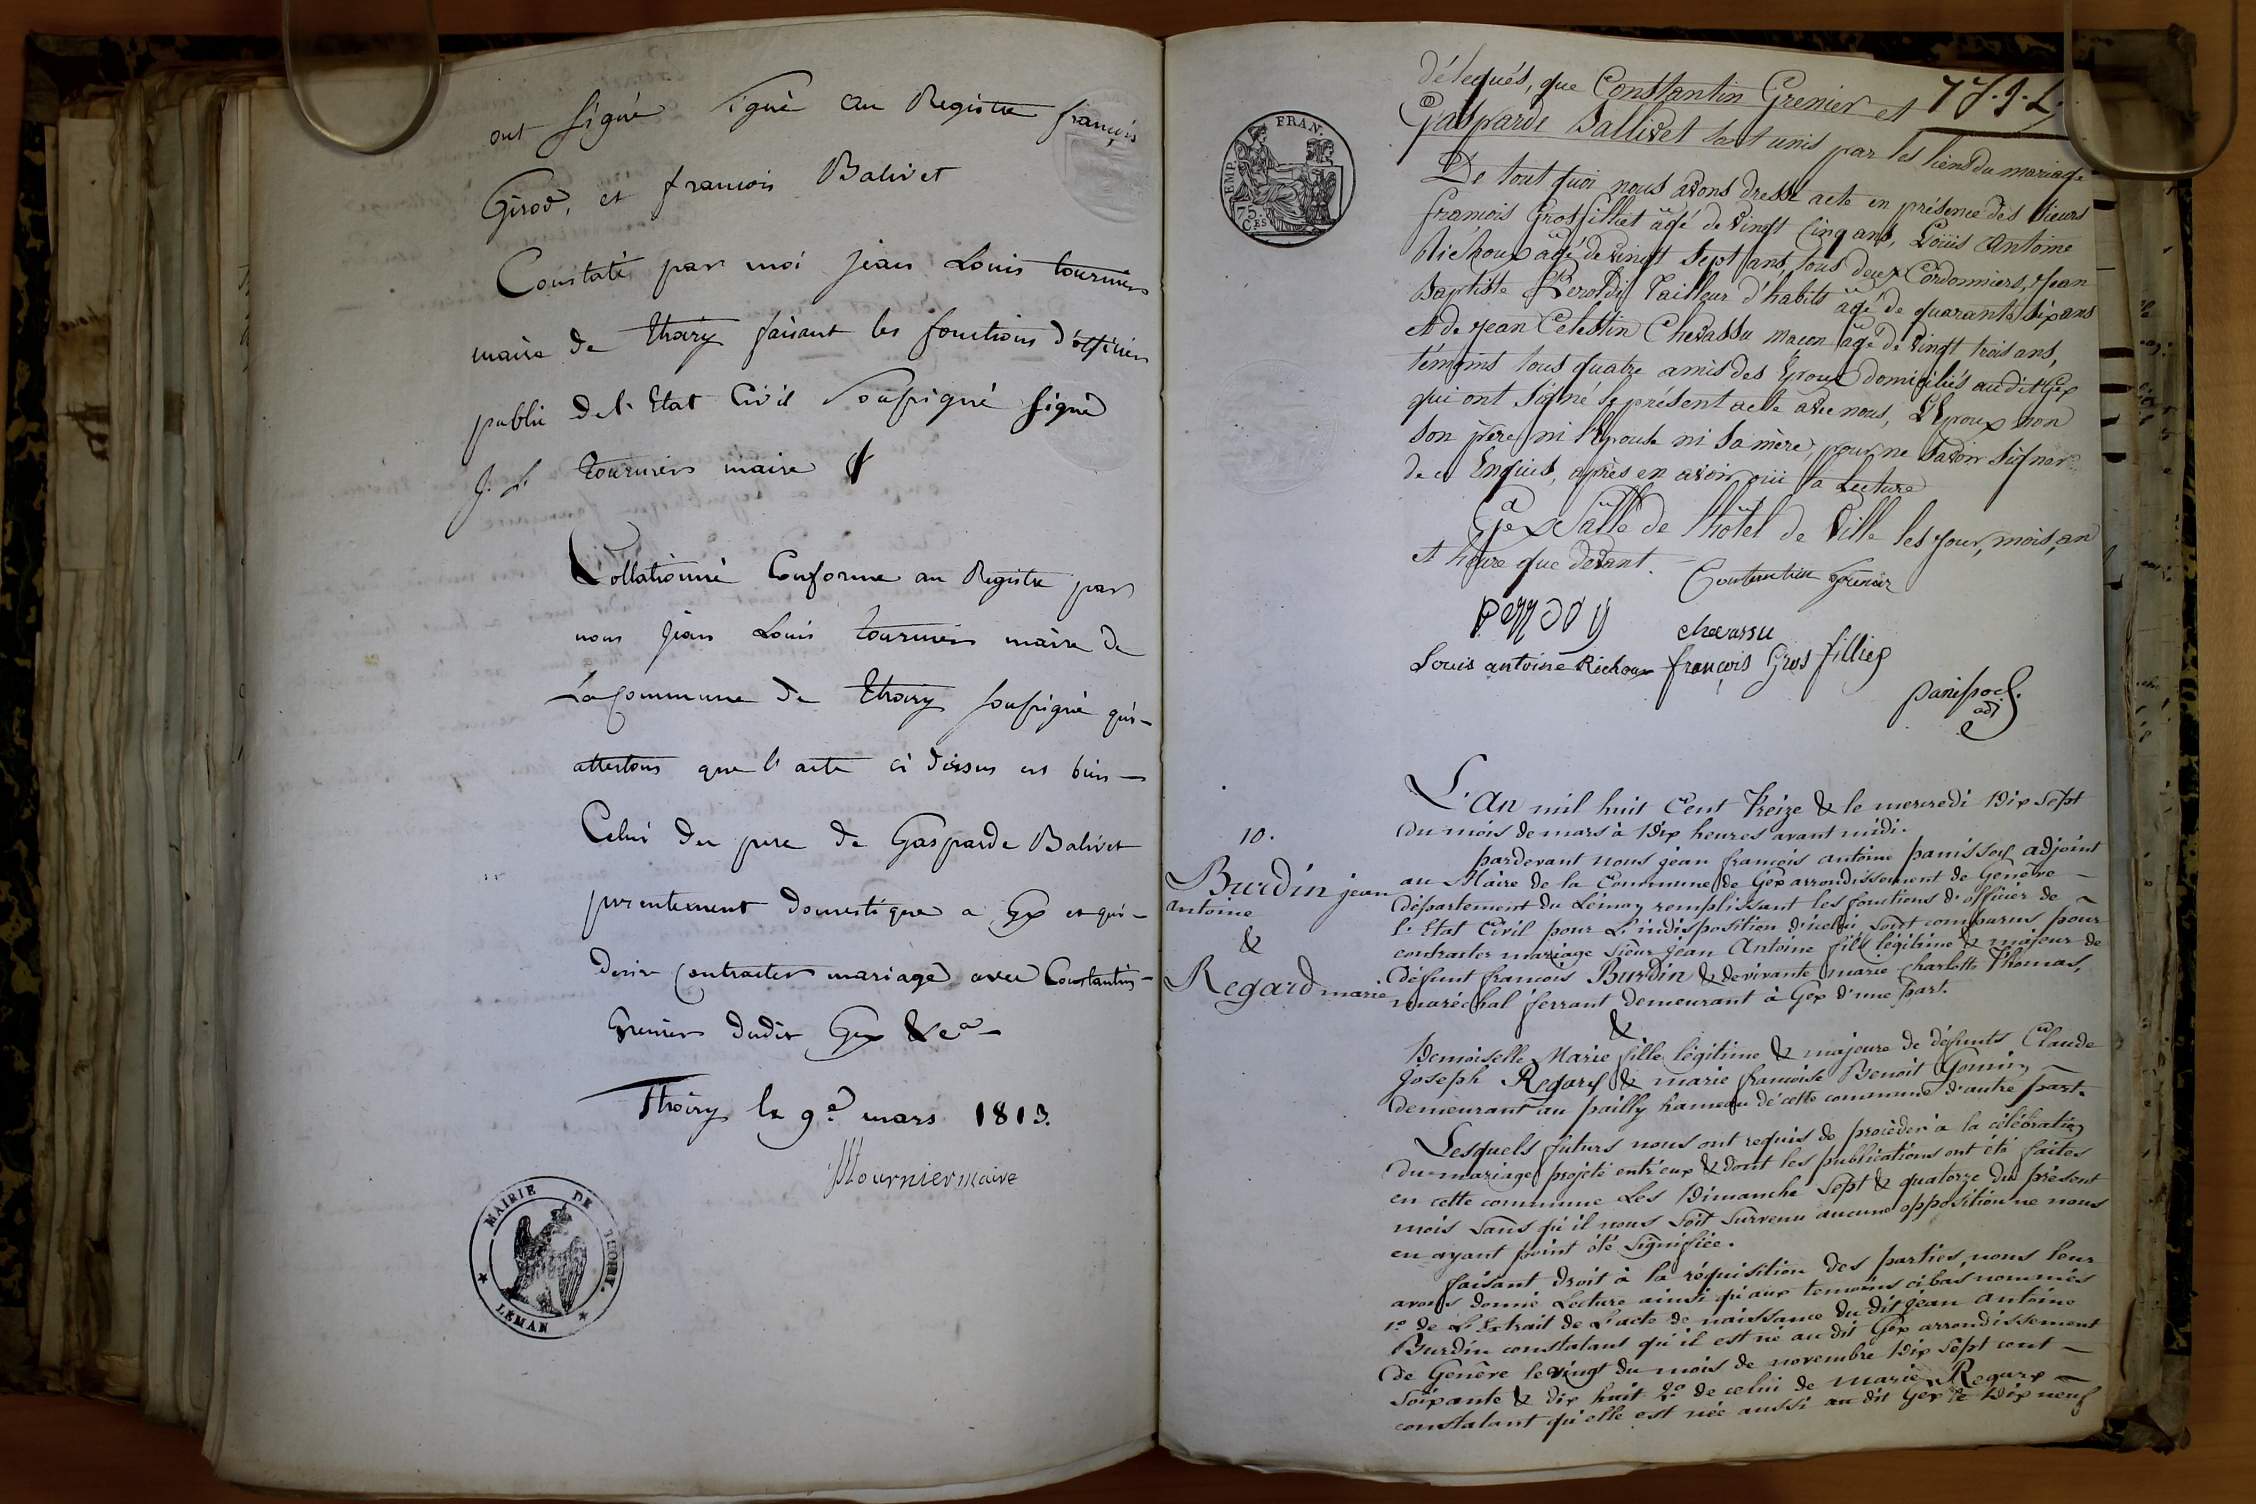 ont signé signé au Registre françois
Girod, et francois Balivet
Constaté par moi jean Louis tournier
maire de Thoiry faisant les fonctions d'officier
public de l'Etat Civil soussigné signé
J. L. tournier maire
Collationné Conforme au Registre par
nous jean Louis tournier maire de
La Commune de Thoiry soussigné qui
attestons que l'acte ci dessus est bien
Celui du pere de Gasparde Balivet
presentement domestique a Gex et qui
desire Contracter mariage avec Constantin
Grenier dudit Gex &ca
Thoiry le 9e mars 1813.
Tournier maire
MAIRIE DE THOIRY.
LÉMAN
EMP. FRAN.
75.
CES
délegués, que Constantin Grenier et
Gasparde Ballivet sont unis par les liens du mariage
De tout quoi nous avons dressé acte en présence des Sieurs
françois Grosfilliet âgé de vingt Cinq ans, Loüis Antoine
Richoux âgé de vingt sept ans, tous deux Cordonniers, Jean
Baptiste Tailleur d'habits âgé de quarante six ans
et de Jean Celestin Chevassu macon âgé de vingt trois ans,
témoins tous quatre amis des Epoux domiciliés audit Gex
qui ont signé le présent acte avec nous, L'Epoux non
son père, ni l'Epouse ni sa mère, pour ne savoir signer
de ce Enquis, après en avoir oüi la Lecture
à Gex Salle de l'hôtel de Ville les jour, mois, an
et heure que devant.
Constantin Grenier
chevassu
Louis antoine Richoux françois Gros filliex
panissod.
adj
10.
Burdin jean
antoine
&
Regard marie
L'An mil huit Cent Treize & le mercredi Dix sept
du mois de mars à Dix heures avant midi.
pardevant nous jean françois antoine panissod adjoint
au Maire de la Commune de Gex arrondissement de Genève
département du Léman, remplissant les fonctions d'officier de
l'Etat Civil pour L'indisposition d'icelui, sont comparus pour
contracter mariage Sieur Jean Antoine fils légitime & majeur de
défunt françois Burdin & de vivante marie charlotte Thomas,
maréchal ferrant demeurant à Gex d'une part.
&
Demoiselle Marie fille légitime & majeure de défunts Claude
joseph Regard & marie françoise Benoit Gonin,
demeurant au pailly hameau de cette commune d'autre part.
Lesquels futurs nous ont requis de procéder à la célébration
du mariage projeté entr'eux & dont les publications ont été faites
en cette commune Les Dimanche sept & quatorze du présent
mois sans qu'il nous soit survenu aucune opposition ne nous
en ayant point été signifiée.
faisant droit à la réquisition des parties, nous leur
avons donné Lecture ainsi qu'aux temoins ci bas nommés
1.º de L'Extrait de L'acte de naissance du dit jean antoine
Burdin constatant qu'il est né au dit Gex arrondissement
de Genève le vingt du mois de novembre Dix sept cent
soixante & dix huit 2.º de celui de marie Regard
constatant qu'elle est née aussi au dit Gex le Dix neuf